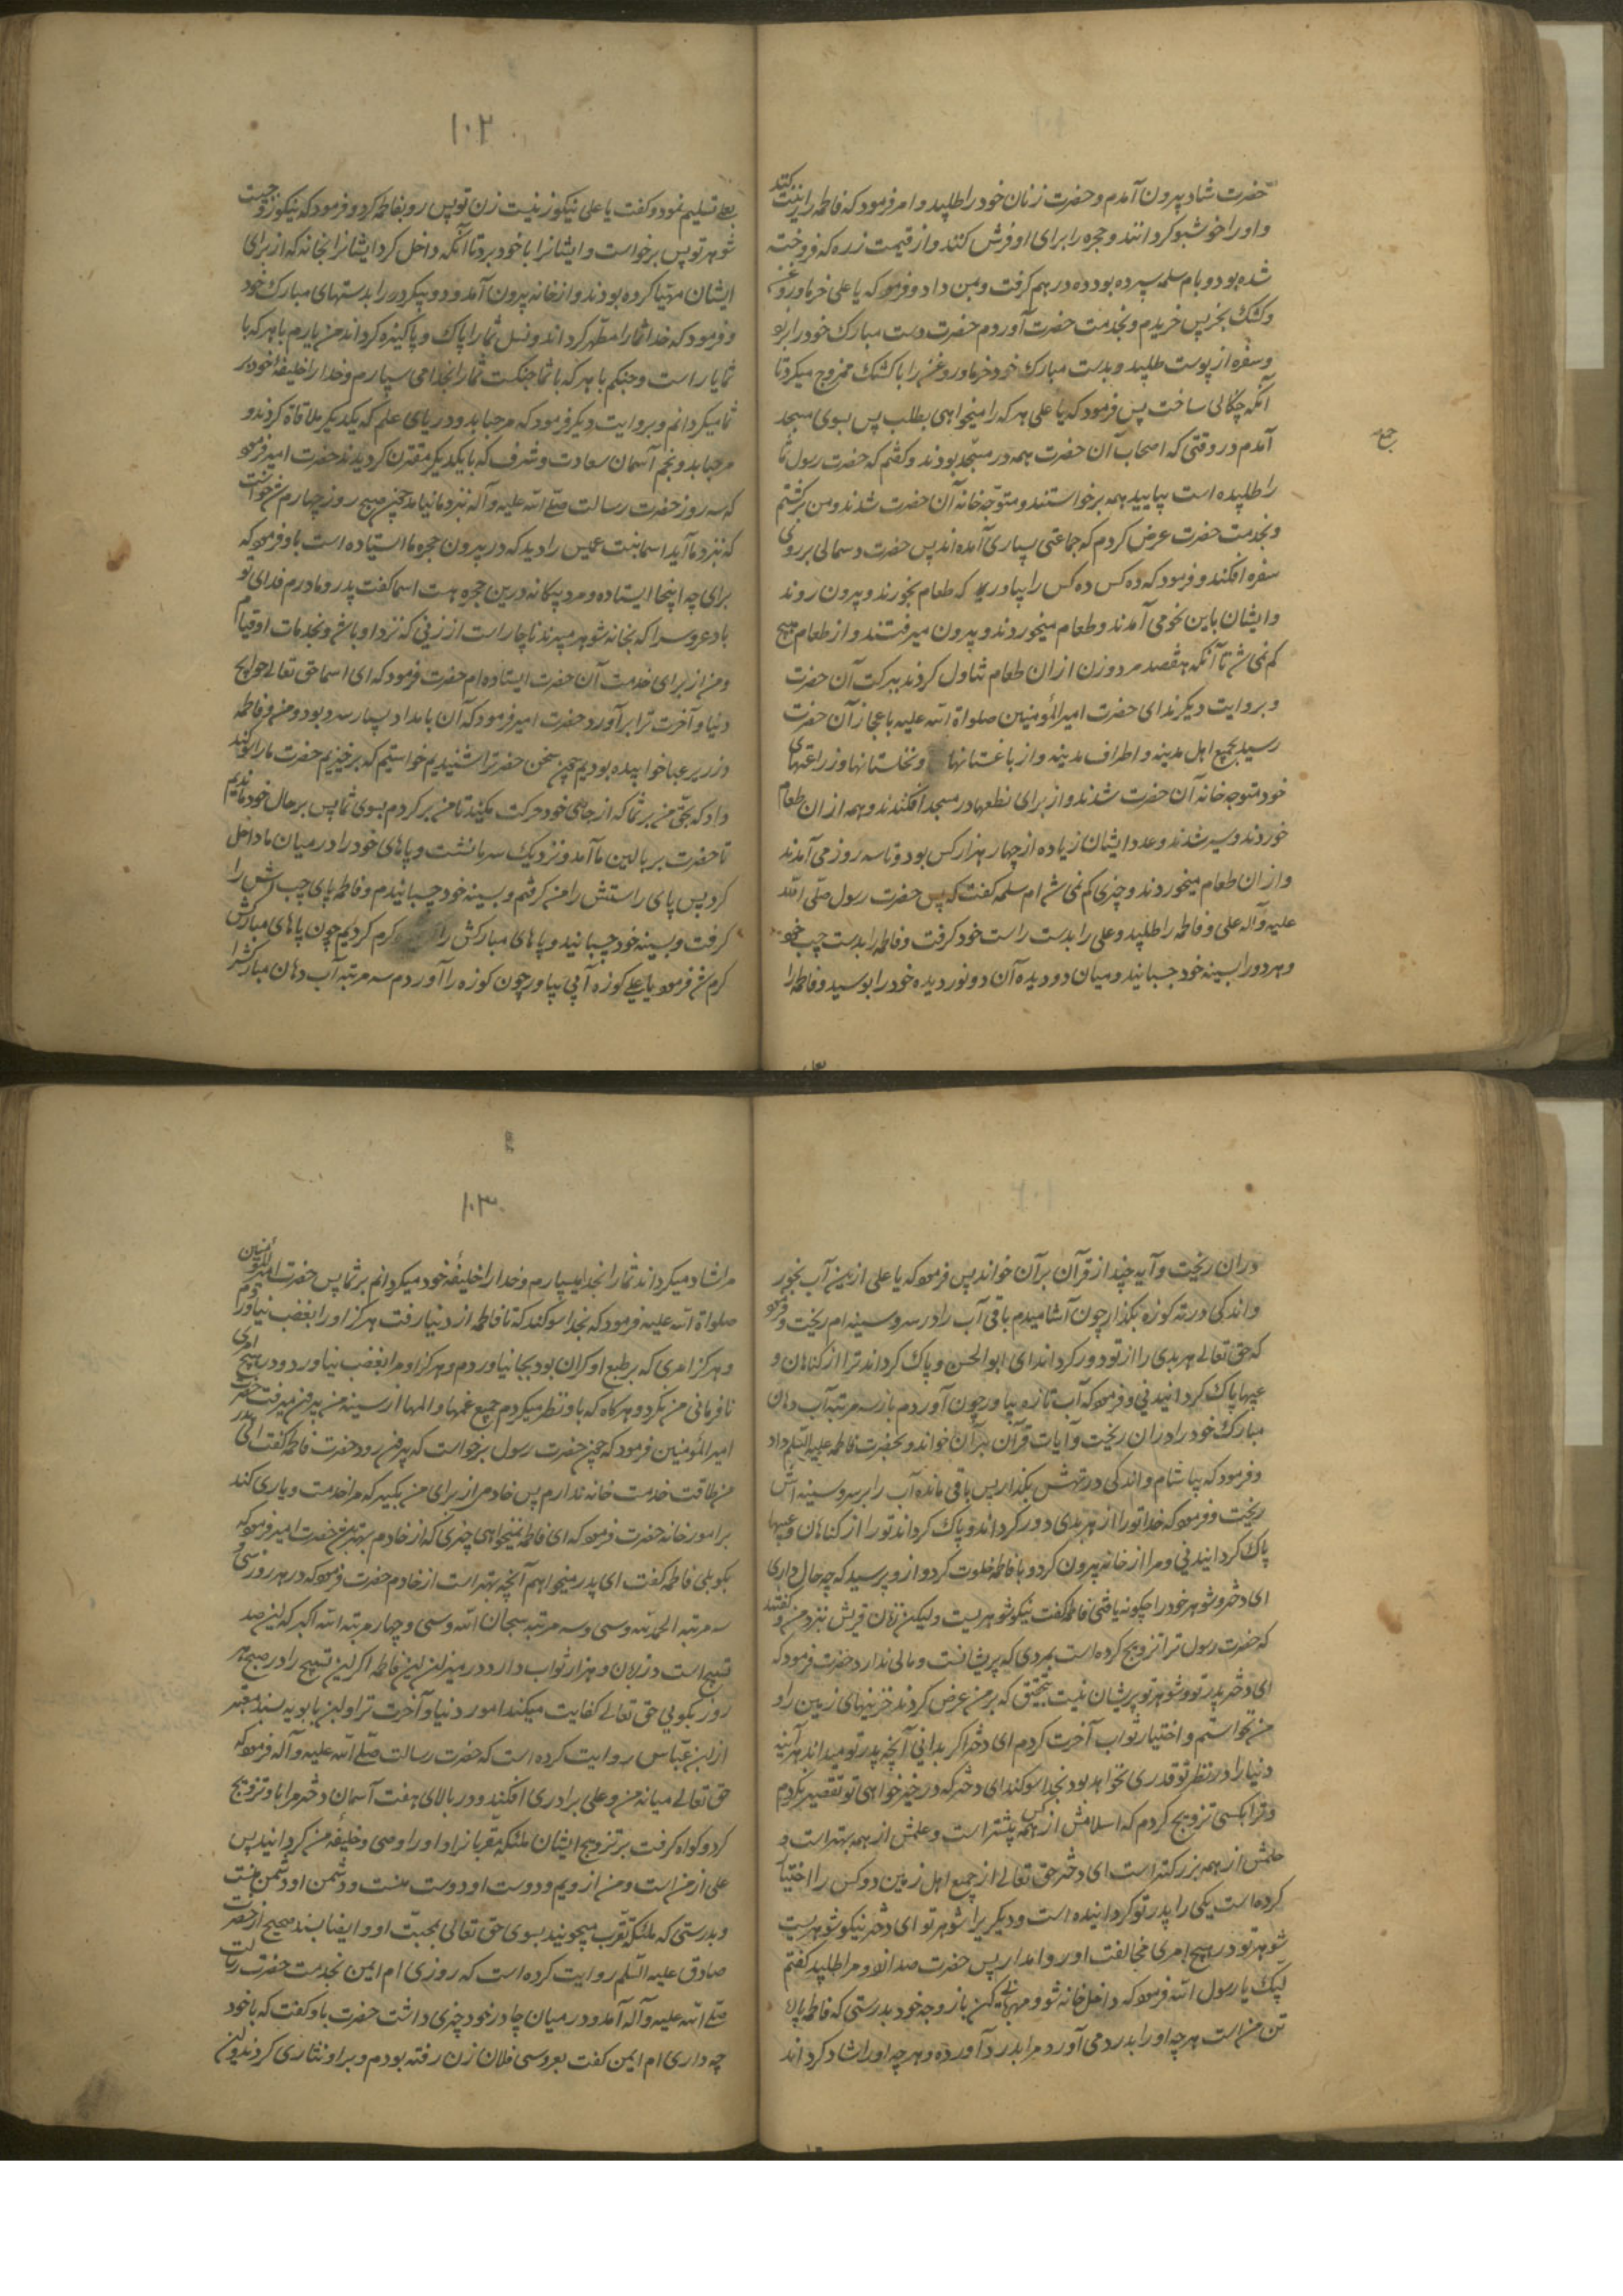 حضرت شاد بیرون آمدم و حضرت زنان خود را طلبید و امر فرمود که فاطمه را زینت کنند
و او را خوشبو گردانند و حجره را برای او فرش کنند و از قیمت زره که فروخته
شده بود و بام سلمه سپرده بود ده درهم گرفت و بمن داد و فرمود که یا علی خرما و روغن
و کشک بخر پس خریدم و بخدمت حضرت آوردم حضرت دست مبارک خود را بر
و سفره از پوست طلبید و بدست مبارک خود خرما و روغن را با کشک ممزوج میکرد تا
آنکه چنگالی ساخت پس فرمود که یا علی هر که را میخواهی بطلب پس بسوی مسجد
آمدم در وقتی که اصحاب آن حضرت همه در مسجد بودند و گفتم که حضرت رسول شما
را طلبیده است بیایید همه برخواستند و متوجه خانه آن حضرت شدند و من برگشتم
و بخدمت حضرت عرض کردم که جماعتی بسیاری آمده اند پس حضرت دسمالی بر روی
سفره افکند و فرمود که ده کس ده کس را بیاور که طعام بخورند و بیرون روند
و ایشان باین نحو می آمدند و طعام میخوردند و بیرون میرفتند و از طعام هیچ
کم نمی شد تا آنکه هفصد مرد و زن از ان طعام تناول کردند ببرکت آن حضرت
و بروایت دیگر ندای حضرت امیرالمؤمنین صلواة الله علیه باعجاز آن حضرت
رسید بجمیع اهل مدینه و اطراف مدینه و از باغستانها و نخلستانها و زراعتهای
خود متوجه خانه آن حضرت شدند و از برای نطعها در مسجد افکندند و همه از ان طعام
خوردند و سیر شدند و عدد ایشان زیاده از چهار هزار کس بود و تا سه روز می آمدند
و از ان طعام میخوردند و چیزی کم نمی شد ام سلمه گفت که پس حضرت رسول صلی الله
علیه و آله علی و فاطمه را طلبید و علی را بدست راست خود گرفت و فاطمه را بدست چپ خود
و هر دو را بسینه خود چسبانید و میان دو دیده آن دو نور دیده خود را بوسید و فاطمه را
۱۰۲
بعلی تسلیم نمود و گفت یا علی نیکو زنیست زن تو پس رو بفاطمه کرد و فرمود که نیکو زوجیست
شوهر تو پس برخواست و ایشانرا با خود برد تا آنکه داخل کرد ایشانرا بخانه که از برای
ایشان مهیا کرده بودند و از خانه بیرون آمد و دو پیکر در را بدستهای مبارک خود
و فرمود که خدا شما را مطهر گرداند و نسل شما را پاک و پاکیزه گرداند من یارم با هر که با
شما یار است و جنگم با هر که با شما جنگست شما را بخدا می سپارم و خدا را خلیفه خود بر
شما میگردانم و بروایت دیگر فرمود که مرحبا بدو دریای علم که بیکدیگر ملاقاة کردند و
مرحبا بدو نجم آسمان سعادت و شرف که با یکدیگر مقترن گردیدند حضرت امیر فرمود
که سه روز حضرت رسالت صلی الله علیه و آله نزد ما نیامد چون صبح روز چهارم شد خواست
که نزد ما آید اسما بنت عمیس را دید که در بیرون حجره ما ایستاده است باو فرمود که
برای چه اینجا ایستاده و مرد بیگانه درین حجره هست اسما گفت پدر و مادرم فدای تو
باد عروس را که بخانه شوهر میبرند ناچار است از زنی که نزد او باشد و بخدمات او قیام
و من از برای خدمت آن حضرت ایستاده ام حضرت فرمود که ای اسما حق تعالی حوایج
دنیا و آخرت ترا بر آورد حضرت امیر فرمود که آن بامداد بسیار سرد بود و من و فاطمه
در زیر عبا خوابیده بودیم چون سخن حضرترا شنیدیم خواستیم که برخیزیم حضرت ما را سوگند
داد که بحق من بر شما که از جای خود حرکت مکنید تا من برگردم بسوی شما پس بر حال خود ماندیم
تا حضرت بر بالین ما آمد و نزدیک سر ما نشست و پاهای خود را در میان ما داخل
کرد پس پای راستش را من گرفتم و بسینه خود چسبانیدم و فاطمه پای چپ آنش را
گرفت و بسینه خود چسبانید و پاهای مبارکش را گرم کردیم چون پاهای مبارکش
گرم شد فرمود یا علی کوزه آبی بیاور چون کوزه را آوردم سه مرتبه آب دهان مبارکش را
در ان ریخت و آیه چند از قرآن بر آن خواند پس فرمود که یا علی از این آب بخور
و اندکی در ته کوزه بگذار چون آشامیدم باقی آب را در سر و سینه ام ریخت و فرمود
که حق تعالی هر بدی را از تو دور گرداند ای ابوالحسن و پاک گرداند ترا از گناهان و
عیبها پاک گردانیدنی و فرمود که آب تازه بیاور چون آوردم باز سه مرتبه آب دهان
مبارک خود را در ان ریخت و آیات قرآن بر آن خواند و بحضرت فاطمه علیه السلم داد
و فرمود که بیاشام و اندکی در تهش بگذار پس باقی مانده آب را بر سر و سینه اش
ریخت و فرمود که خدا تو را از هر بدی دور گرداند و پاک گرداند تو را از گناهان و عیبها
پاک گردانیدنی و مرا از خانه بیرون کرد و با فاطمه خلوت کرد و از و پرسید که چه حال داری
ای دختر و شوهر خود را چگونه یافتی فاطمه گفت نیکو شوهریست ولیکن زنان قریش نزد من و گفتند
که حضرت رسول ترا تزویج کرده است بمردی که پریشانست و مالی ندارد حضرت فرمود که
ای دختر پدر تو و شوهر تو پریشان نیست بتحقیق که بر من عرض کردند خزینهای زمین را و
من نخواستم و اختیار ثواب آخرت کردم ای دختر اگر بدانی آنچه پدر تو میداند هر آینه
دنیا را در نظر تو قدری نخواهد بود بخدا سوگند ای دختر که در خیر خواهی تو تقصیر نکردم
و ترا بکسی تزویج کردم که اسلامش از همه کس پیشتر است و علمش از همه بهتر است و
حلمش از همه بزرگتر است ای دختر حق تعالی از جمیع اهل زمین دو کس را اختیار
کرده است یکی را پدر تو گردانیده است و دیگریرا شوهر تو ای دختر نیکو شوهریست
شوهر تو در هیچ امری مخالفت او روا مدار پس حضرت صدا زد و مرا طلبید گفتم
لبیک یا رسول الله فرمود که داخل خانه شو و مهربانی کن با زوجه خود بدرستی که فاطمه پاره
تن من است هر چه او را بدرد می آورد مرا بدرد آورده و هر چه او را شاد گرداند
۱۰۳
مرا شاد میگرداند شما را بخدا میسپارم و خدا را خلیفه خود میگردانم بر شما پس حضرت امیرالمؤمنین
صلواة الله علیه فرمود که بخدا سوگند که تا فاطمه از دنیا رفت هرگز او را بغضب نیاوردم
و هرگز امری که بر طبع او گران بود بجا نیاوردم و هرگز او مرا بغضب نیاورد و در هیچ امری
نافرمانی من نکرد و هرگاه که باو نظر میکردم جمیع غمها و المها از سینه من بیرون میرفت حضرت
امیرالمؤمنین فرمود که چون حضرت رسول برخواست که بیرون رود حضرت فاطمه گفت ای پدر
من طاقت خدمت خانه ندارم پس خادمی از برای من بگیر که مرا خدمت و یاری کند
بر امور خانه حضرت فرمود که ای فاطمه نمیخواهی چیزی که از خادم بهتر حضرت امیر فرمود که
بگو بلی فاطمه گفت ای پدر میخواهم آنچه بهتر است از خادم حضرت فرمود که در هر روز سی و
سه مرتبه الحمد لله و سی و سه مرتبه سبحان الله و سی و چهار مرتبه الله اکبر که این صد
تسبیح است در زبان و هزار ثواب دارد در میزان ای فاطمه اگر این تسبیح را در صبح هر
روز بگویی حق تعالی کفایت میکند امور دنیا و آخرت ترا و ابن بابویه بسند معتبر
از ابن عباس روایت کرده است که حضرت رسالت صلی الله علیه و آله فرمود که
حق تعالی میانه من و علی برادری افکند و در بالای هفت آسمان دختر مرا باو تزویج
کرد و گواه گرفت بر تزویج ایشان ملئکه مقربانرا و او را وصی و خلیفه من گردانید پس
علی از من است و من از ویم و دوست او دوست منست و دشمن او دشمن منست
و بدرستی که ملئکه تقرب میجویند بسوی حق تعالی بمحبت او و ایضا بسند صحیح از حضرت
صادق علیه السلم روایت کرده است که روزی ام ایمن بخدمت حضرت رسالت
صلی الله علیه و آله آمد و در میان چادر خود چیزی داشت حضرت باو گفت که با خود
چه داری ام ایمن گفت بعروسی فلان زن رفته بودم و بر او نثاری کردند و این